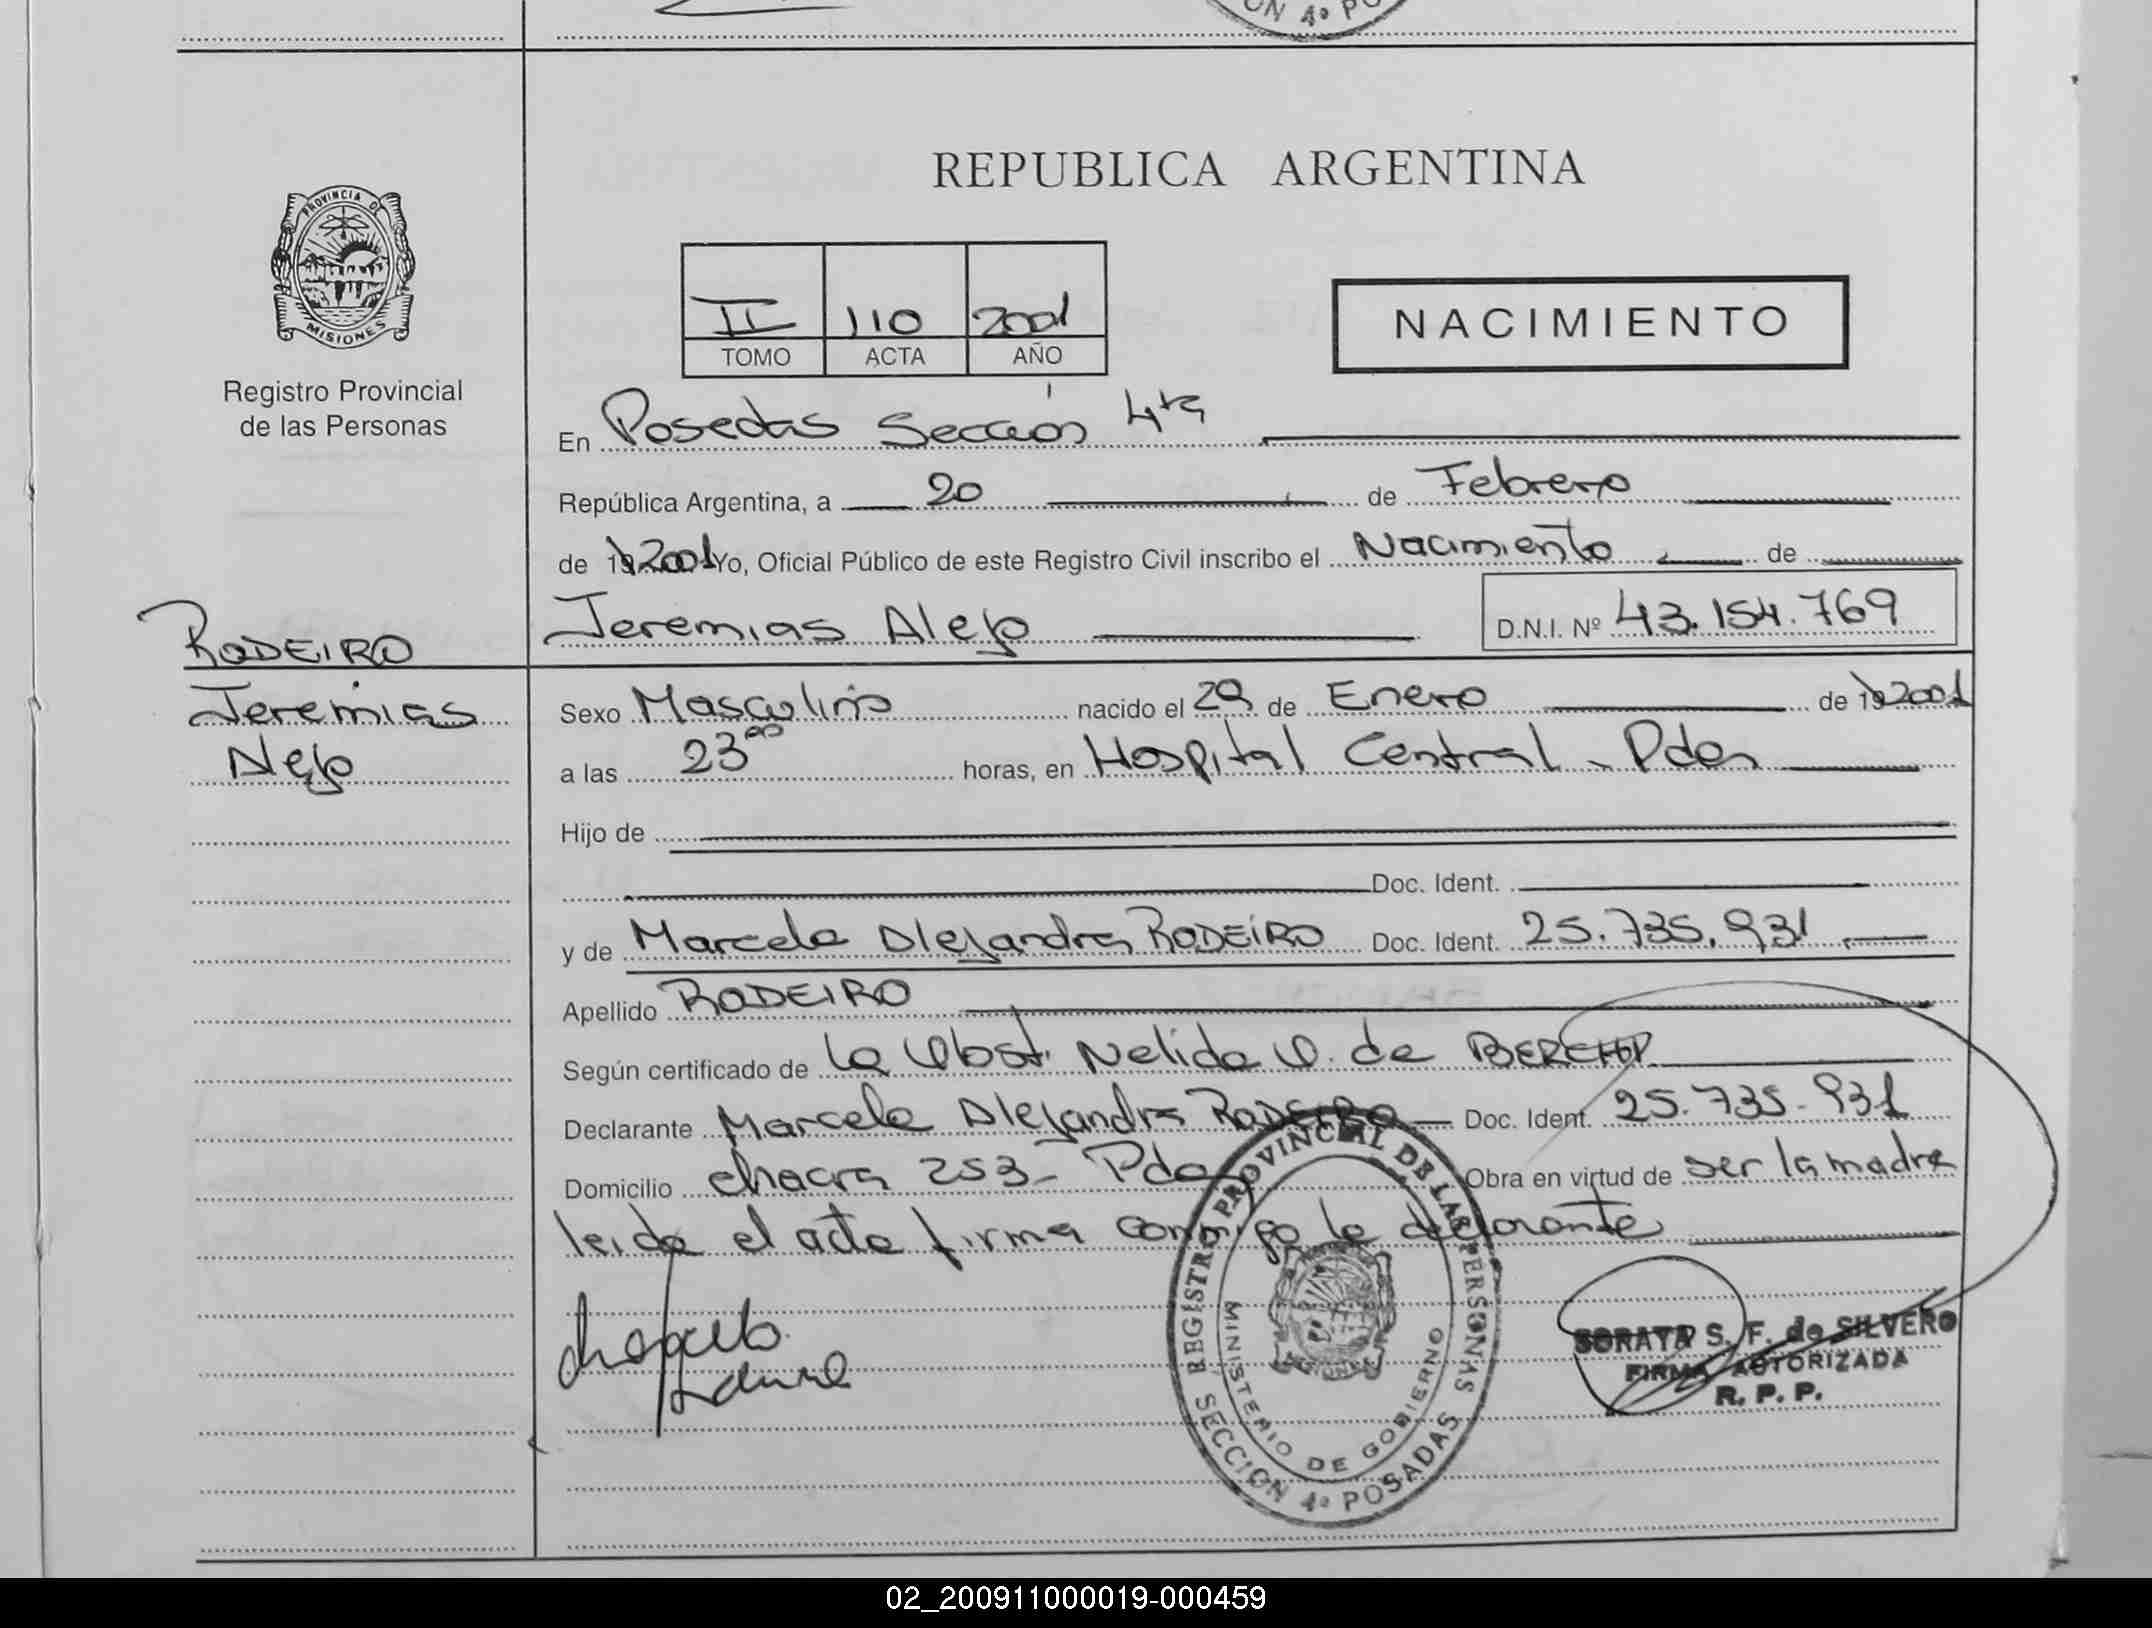 ON 4º PO
REPUBLICA ARGENTINA
PROVINCIA DE
MISIONES
Registro Provincial
de las Personas
II 110 2001
TOMO ACTA AÑO
NACIMIENTO
En Posadas Sección 4ta
República Argentina, a 20 de Febrero
de 19 2001 Yo, Oficial Público de este Registro Civil inscribo el Nacimiento de
Jeremias Alejo D.N.I. Nº 43.154.769
RODEIRO
Jeremias
Alejo
Sexo Masculino nacido el 29 de Enero de 19 2001
a las 23 00 horas, en Hospital Central - Pdas
Hijo de
Doc. Ident.
y de Marcela Alejandra RODEIRO Doc. Ident. 25.735.931
Apellido RODEIRO
Según certificado de la Obst. Nelida O. de
Declarante Marcela Alejandra RODEIRO Doc. Ident. 25.735.931
Domicilio chacra 253 - Pdas Obra en virtud de ser la madre
leida el acta firma conmigo la declarante
REGISTRO PROVINCIAL DE LAS PERSONAS
MINISTERIO DE GOBIERNO
SECCION 4º POSADAS
SORAYA S. F. de SILVERO
FIRMA AUTORIZADA
R. P. P.
02_200911000019-000459